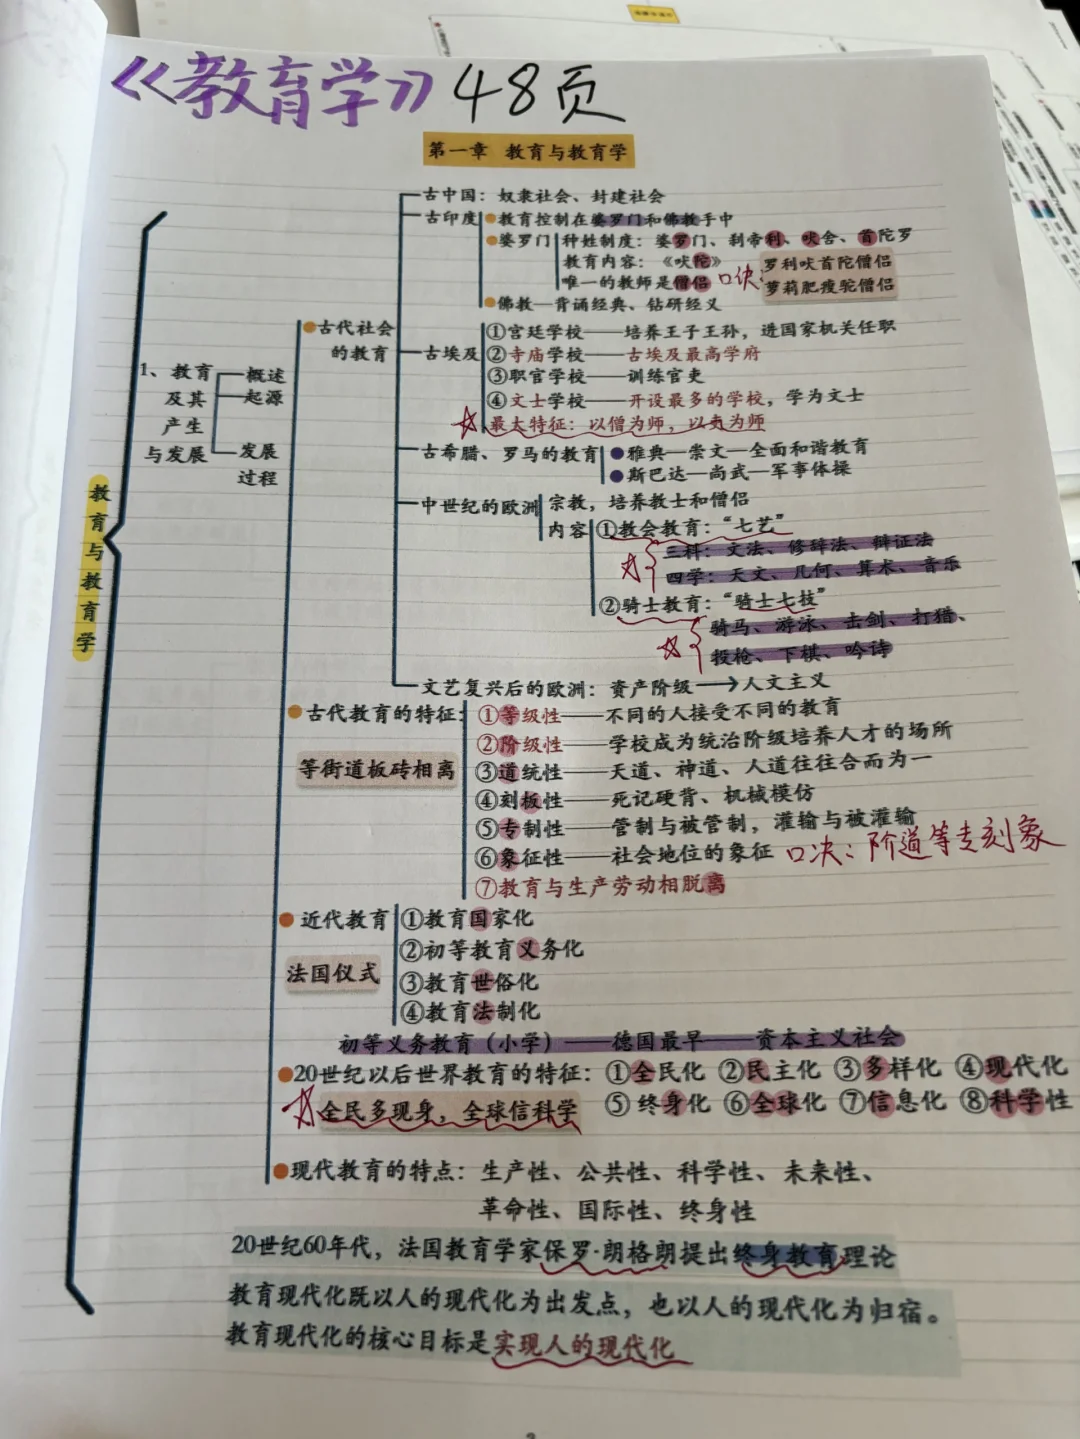 《教育学》48页
第一章 教育与教育学
教育与教育学
1、教育及其产生与发展
概述
起源
发展过程
●古代社会的教育
古中国：奴隶社会、封建社会
古印度
●教育控制在婆罗门和佛教手中
●婆罗门
种姓制度：婆罗门、刹帝利、吠舍、首陀罗
教育内容：《吠陀》
唯一的教师是僧侣
口诀：
罗利吠首陀僧侣
萝莉肥瘦驼僧侣
●佛教—背诵经典、钻研经义
古埃及
①宫廷学校——培养王子王孙，进国家机关任职
②寺庙学校——古埃及最高学府
③职官学校——训练官吏
④文士学校——开设最多的学校，学为文士
最大特征：以僧为师，以吏为师
古希腊、罗马的教育
●雅典—崇文—全面和谐教育
●斯巴达—尚武—军事体操
中世纪的欧洲
宗教，培养教士和僧侣
内容
①教会教育：“七艺”
三科：文法、修辞法、辩证法
四学：天文、几何、算术、音乐
②骑士教育：“骑士七技”
骑马、游泳、击剑、打猎、
投枪、下棋、吟诗
文艺复兴后的欧洲：资产阶级→人文主义
●古代教育的特征：
等街道板砖相离
①等级性——不同的人接受不同的教育
②阶级性——学校成为统治阶级培养人才的场所
③道统性——天道、神道、人道往往合而为一
④刻板性——死记硬背、机械模仿
⑤专制性——管制与被管制，灌输与被灌输
⑥象征性——社会地位的象征
口决：阶道等专刻象
⑦教育与生产劳动相脱离
●近代教育
法国仪式
①教育国家化
②初等教育义务化
③教育世俗化
④教育法制化
初等义务教育（小学）——德国最早——资本主义社会
●20世纪以后世界教育的特征：①全民化 ②民主化 ③多样化 ④现代化
全民多现身，全球信科学 ⑤终身化 ⑥全球化 ⑦信息化 ⑧科学性
●现代教育的特点：生产性、公共性、科学性、未来性、
革命性、国际性、终身性
20世纪60年代，法国教育学家保罗·朗格朗提出终身教育理论
教育现代化既以人的现代化为出发点，也以人的现代化为归宿。
教育现代化的核心目标是实现人的现代化